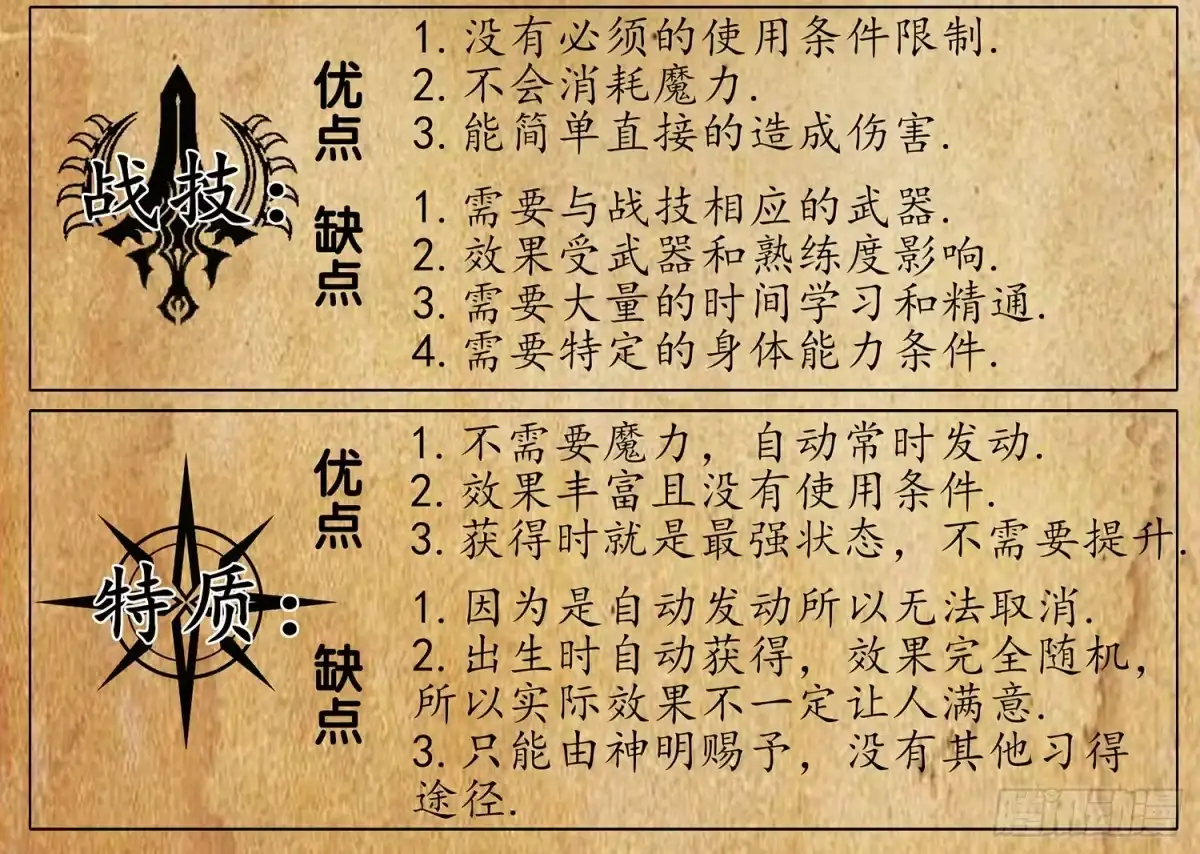 战技：
优点
1. 没有必须的使用条件限制.
2. 不会消耗魔力.
3. 能简单直接的造成伤害.
缺点
1. 需要与战技相应的武器.
2. 效果受武器和熟练度影响.
3. 需要大量的时间学习和精通.
4. 需要特定的身体能力条件.
特质：
优点
1. 不需要魔力，自动常时发动.
2. 效果丰富且没有使用条件.
3. 获得时就是最强状态，不需要提升.
缺点
1. 因为是自动发动所以无法取消.
2. 出生时自动获得，效果完全随机，
所以实际效果不一定让人满意.
3. 只能由神明赐予，没有其他习得
途径.
腾讯动漫